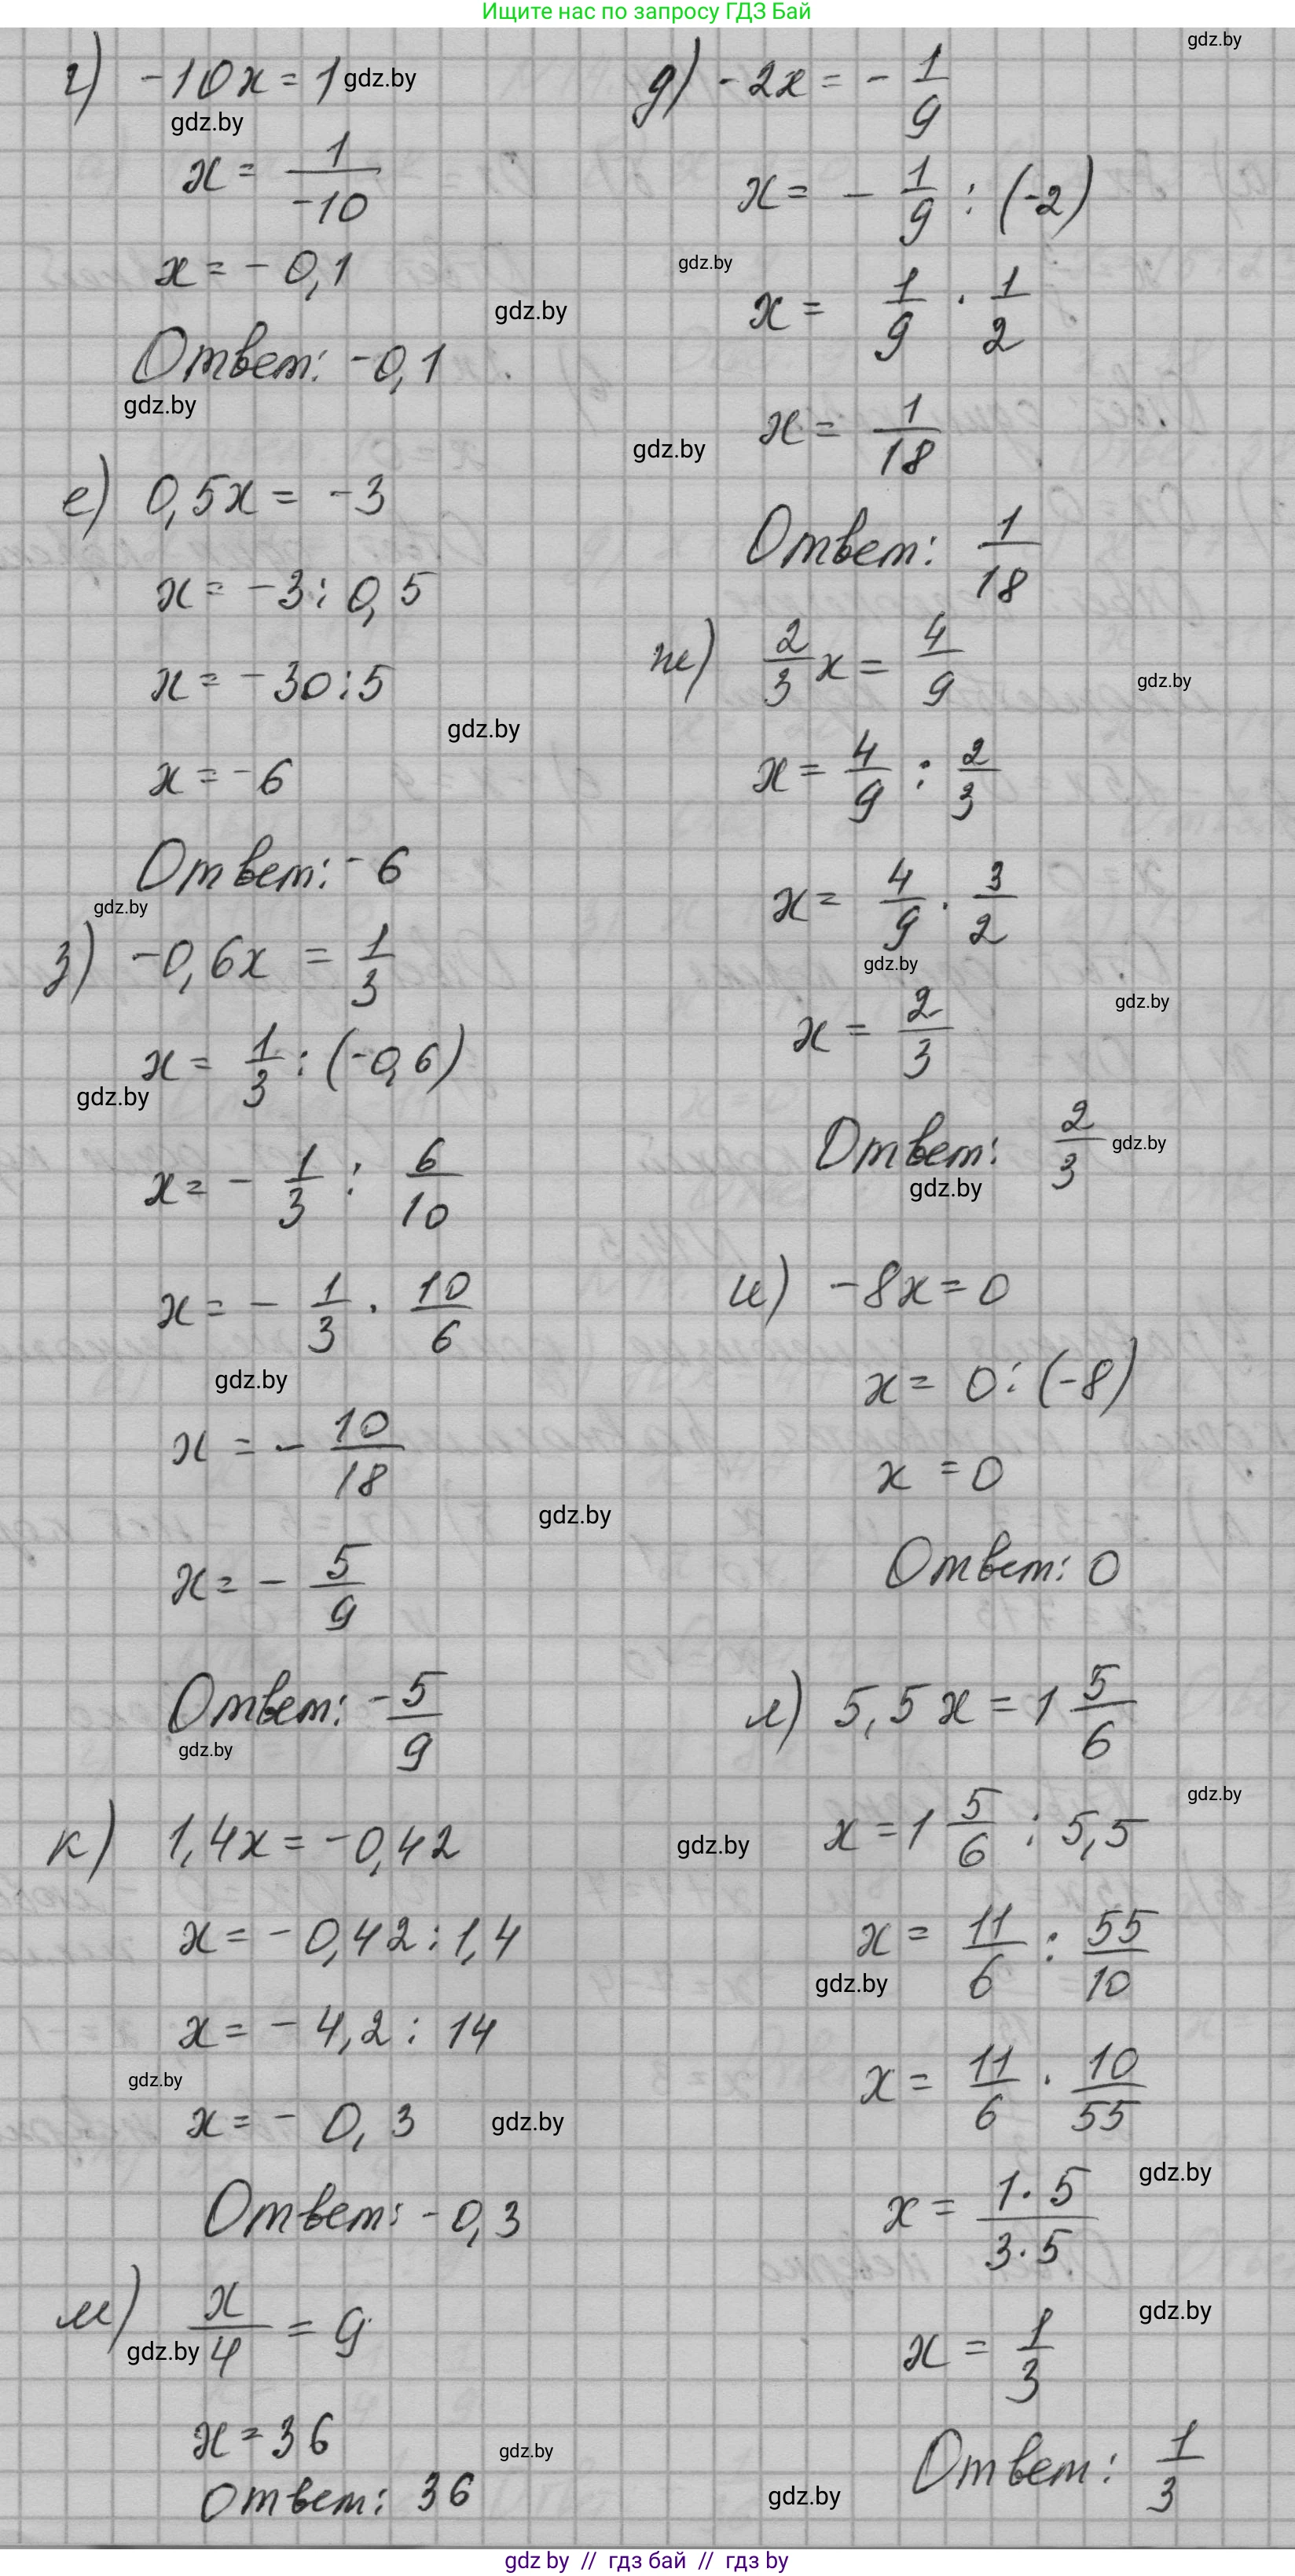 Ищите нас по запросу ГДЗ Бай
gdz.by
г) -10x = 1 gdz.by
gdz.by
x = 1/-10
x = -0,1
gdz.by
Ответ: -0,1
gdz.by
д) -2x = -1/9
x = -1/9 : (-2)
gdz.by
x = 1/9 · 1/2
x = 1/18
gdz.by
Ответ: 1/18
е) 0,5x = -3
x = -3 : 0,5
x = -30 : 5
gdz.by
x = -6
Ответ: -6
gdz.by
ж) 2/3 x = 4/9
gdz.by
x = 4/9 : 2/3
x = 4/9 · 3/2
gdz.by
gdz.by
x = 2/3
Ответ: 2/3 gdz.by
gdz.by
з) -0,6x = 1/3
x = 1/3 : (-0,6)
gdz.by
x = -1/3 : 6/10
x = -1/3 · 10/6
gdz.by
x = -10/18
gdz.by
x = -5/9
Ответ: -5/9
gdz.by
и) -8x = 0
x = 0 : (-8)
x = 0
Ответ: 0
к) 1,4x = -0,42
x = -0,42 : 1,4
x = -4,2 : 14
gdz.by
x = -0,3
gdz.by
Ответ: -0,3
л) 5,5x = 1 5/6
gdz.by
x = 1 5/6 : 5,5
gdz.by
x = 11/6 : 55/10
gdz.by
x = 11/6 · 10/55
gdz.by
x = 1·5/3·5
gdz.by
x = 1/3
Ответ: 1/3
gdz.by
м) x/4 = 9
gdz.by
x = 36
gdz.by
Ответ: 36
gdz by // гдз бай // гдз by